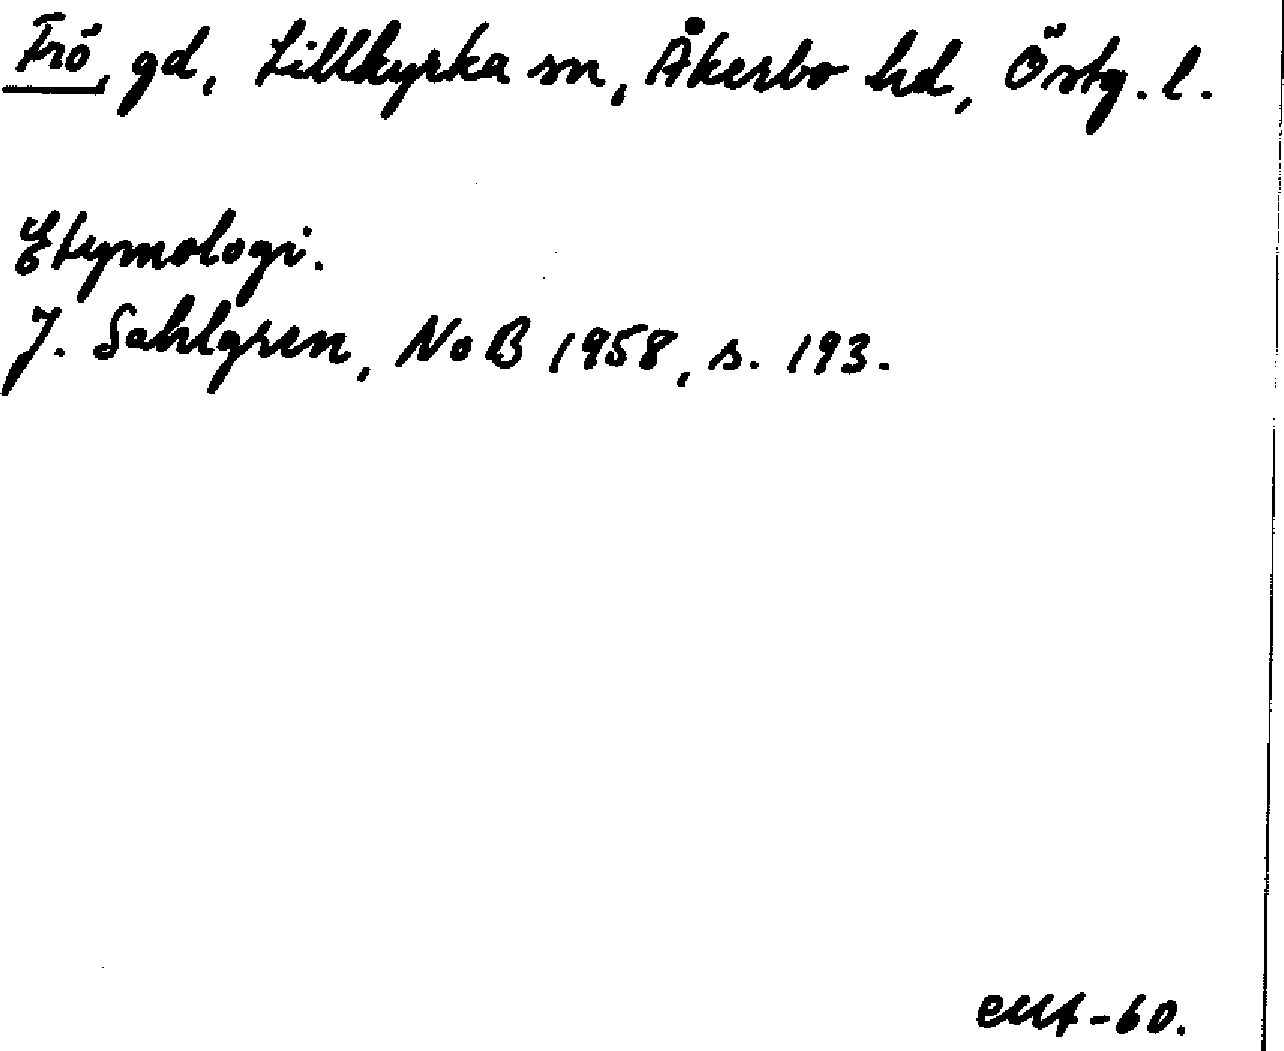 Frö, gd, Lillkyrka sn, Åkerbo hd, Östg. l.
Etymologi.
J. Sahlgren, NoB 1958, s. 193.
-60.